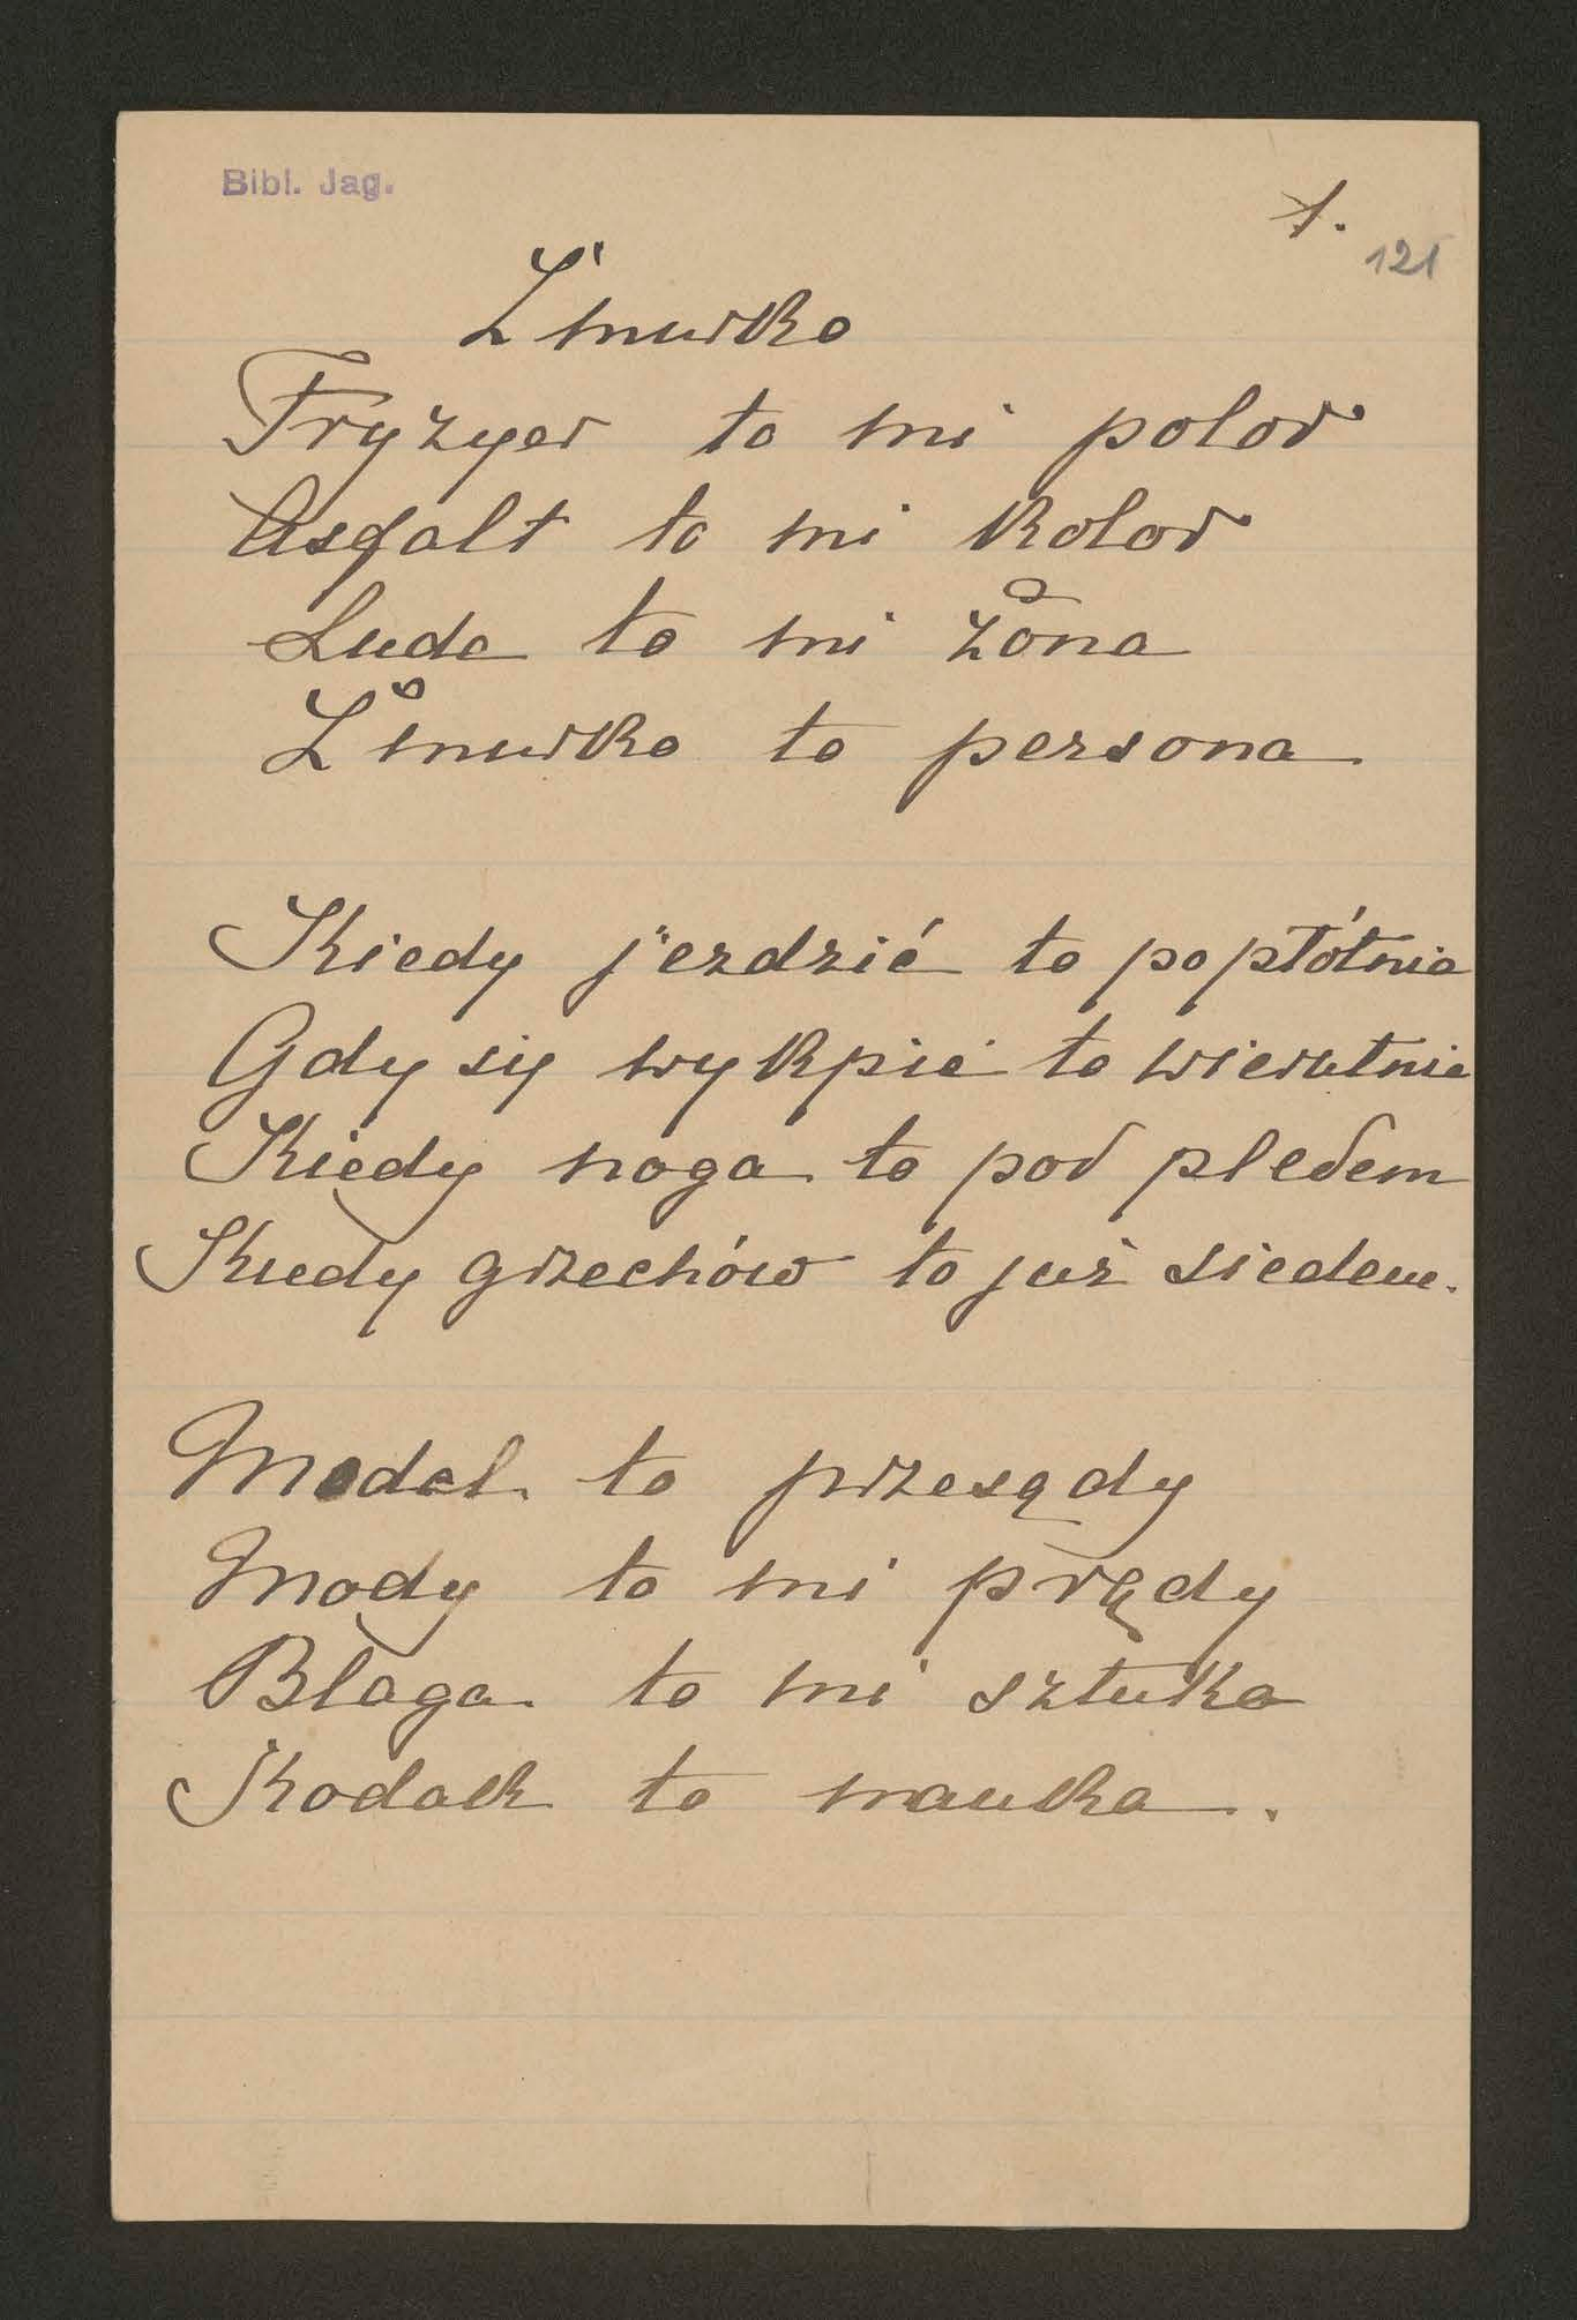 Bibl. Jag.
1.
121
Żmurko
Fryzyer to mi polor
Asfalt to mi kolor
Luda to mi żona
Żmurko to persona
Kiedy jezdzić to po płótnie
Gdy się wykpić to wierutnie
Kiedy noga to pod pledem
Kiedy grzechów to już siedem.
Model to przesądy
Mody to mi prądy
Blaga to mi sztuka
Kodak to nauka.